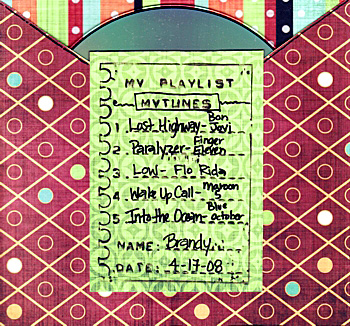 MY PLAYLIST
MYTUNES
1. Lost Highway - Bon Jovi
2. Paralyzer - Finger Eleven
3. Low - Flo Rida
4. Wake Up Call - maroon 5
5. Into the Ocean - Blue october
NAME: Brandy
DATE: 4-17-08